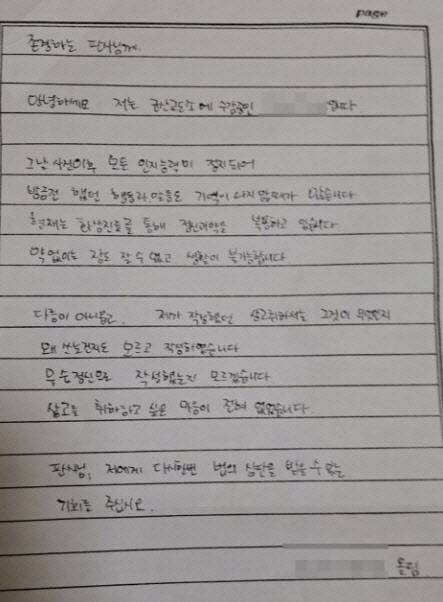 page
존경하는 판사님께.
안녕하세요 저는 군산교도소에 수감중인 입니다.
그날 사건이후 모든 인지능력이 정지되어
방금전 했던 행동과 말들도 기억이 나지 않을때가 많습니다
현재는 화상진료를 통해 정신과약을 복용하고 있습니다
약 없이는 잠도 잘 수 없고 생활이 불가능합니다
다름이 아니옵고. 제가 작성했던 상고취하서는 그것이 무엇인지
왜 쓰는건지도 모르고 작성하였습니다
무슨정신으로 작성했는지 모르겠습니다
상고를 취하하고 싶은 마음이 전혀 없었습니다.
판사님, 저에게 다시한번 법의 심판을 받을 수 있는
기회를 주십시오.
올림.